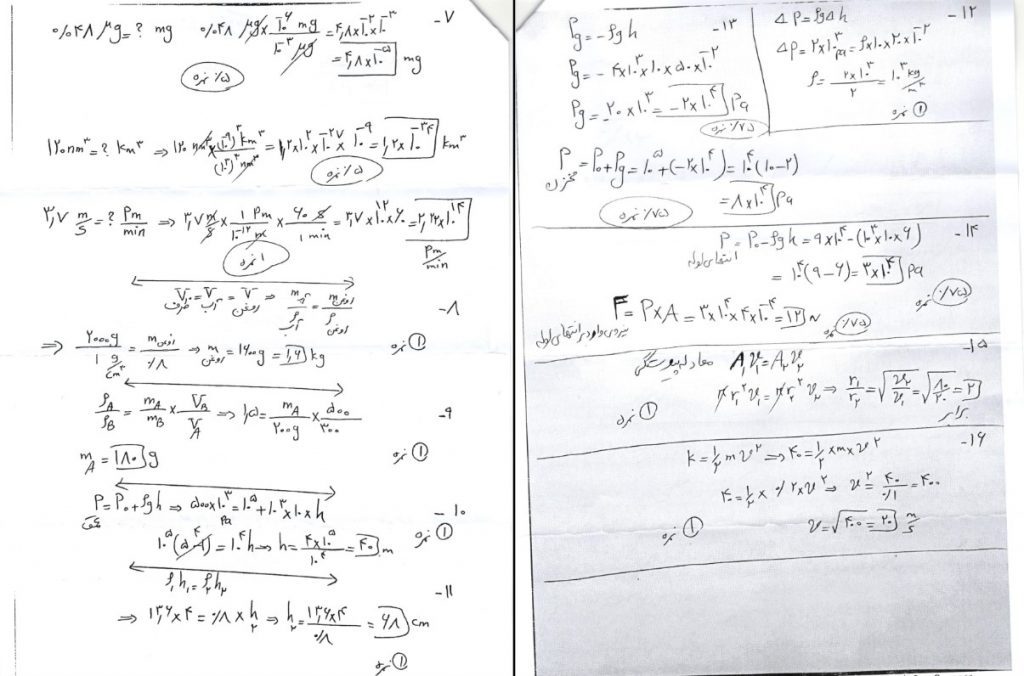 -۷
۰/۰۴۸ μg = ? mg   ۰/۰۴۸ μg × ۱۰^-۶ mg / ۱۰^-۳ μg = ۴٫۸ × ۱۰^-۲ × ۱۰^-۳
= ۴٫۸ × ۱۰^-۵ mg
۰/۵ نمره
۱۲۰ nm^۳ = ? km^۳ ⇒ ۱۲۰ nm^۳ × (۱۰^-۹)^۳ km^۳ / (۱۰^۳)^۳ nm^۳ = ۱٫۲ × ۱۰^۲ × ۱۰^-۲۷ × ۱۰^-۹ = ۱٫۲ × ۱۰^-۳۴ km^۳
۰/۵ نمره
۳٫۷ m/s = ? Pm/min ⇒ ۳٫۷ m/s × ۱ Pm / ۱۰^-۱۲ m × ۶۰ s / ۱ min = ۳٫۷ × ۱۰^۱۲ × ۶۰ = ۲٫۲۲ × ۱۰^۱۴ Pm/min
۱ نمره
-۸
V ظرف = V آب = V روغن ⇒ m آب / ρ آب = m روغن / ρ روغن
⇒ ۲۰۰۰g / ۱ g/cm^۳ = m روغن / ۰/۸ ⇒ m روغن = ۱۶۰۰g = ۱٫۶ kg
۱ نمره
-۹
ρA/ρB = mA/mB × VB/VA ⇒ ۱٫۵ = mA/۲۰۰g × ۵۰۰/۳۰۰
mA = ۱۸۰ g
۱ نمره
-۱۰
P = P۰ + ρgh ⇒ ۵۰۰ × ۱۰^۳ Pa = ۱۰^۵ + ۱۰^۳ × ۱۰ × h
۱۰^۵(۵-۱) = ۱۰^۴ h ⇒ h = ۴ × ۱۰^۵ / ۱۰^۴ = ۴۰ m
۱ نمره
-۱۱
ρ۱h۱ = ρ۲h۲
⇒ ۱۳٫۶ × ۴ = ۰/۸ × h۲ ⇒ h۲ = ۱۳٫۶ × ۴ / ۰/۸ = ۶۸ cm
۱ نمره
-۱۲
ΔP = ρgΔh
ΔP = ۲ × ۱۰^۳ Pa = ρ × ۱۰ × ۲۰ × ۱۰^-۲
ρ = ۲ × ۱۰^۳ / ۲ = ۱۰^۳ kg/m^۳
۱ نمره
-۱۳
Pg = -ρgh
Pg = -۴ × ۱۰^۳ × ۱۰ × ۵۰ × ۱۰^-۲
Pg = -۲۰ × ۱۰^۳ = -۲ × ۱۰^۴ Pa
۰/۷۵ نمره
P مخزن = P۰ + Pg = ۱۰^۵ + (-۲ × ۱۰^۴) = ۱۰^۴(۱۰-۲)
= ۸ × ۱۰^۴ Pa
۰/۷۵ نمره
-۱۴
P انتهای لوله = P۰ - ρgh = ۹ × ۱۰^۴ - (۱۰^۳ × ۱۰ × ۶)
= ۱۰^۴(۹-۶) = ۳ × ۱۰^۴ Pa
۰/۷۵ نمره
F = P × A = ۳ × ۱۰^۴ × ۴ × ۱۰^-۴ = ۱۲ N
۰/۷۵ نمره
-۱۵
معادله پیوستگی A۱v۱ = A۲v۲
πr۱^۲v۱ = πr۲^۲v۲ ⇒ r۱/r۲ = √(v۲/v۱) = √(۸۰/۲۰) = ۲ برابر
۱ نمره
-۱۶
K = ۱/۲ mv^۲ ⇒ ۴۰ = ۱/۲ × m × v^۲
۴۰ = ۱/۲ × ۰/۲ × v^۲ ⇒ v^۲ = ۴۰ / ۰/۱ = ۴۰۰
v = √۴۰۰ = ۲۰ m/s
۱ نمره